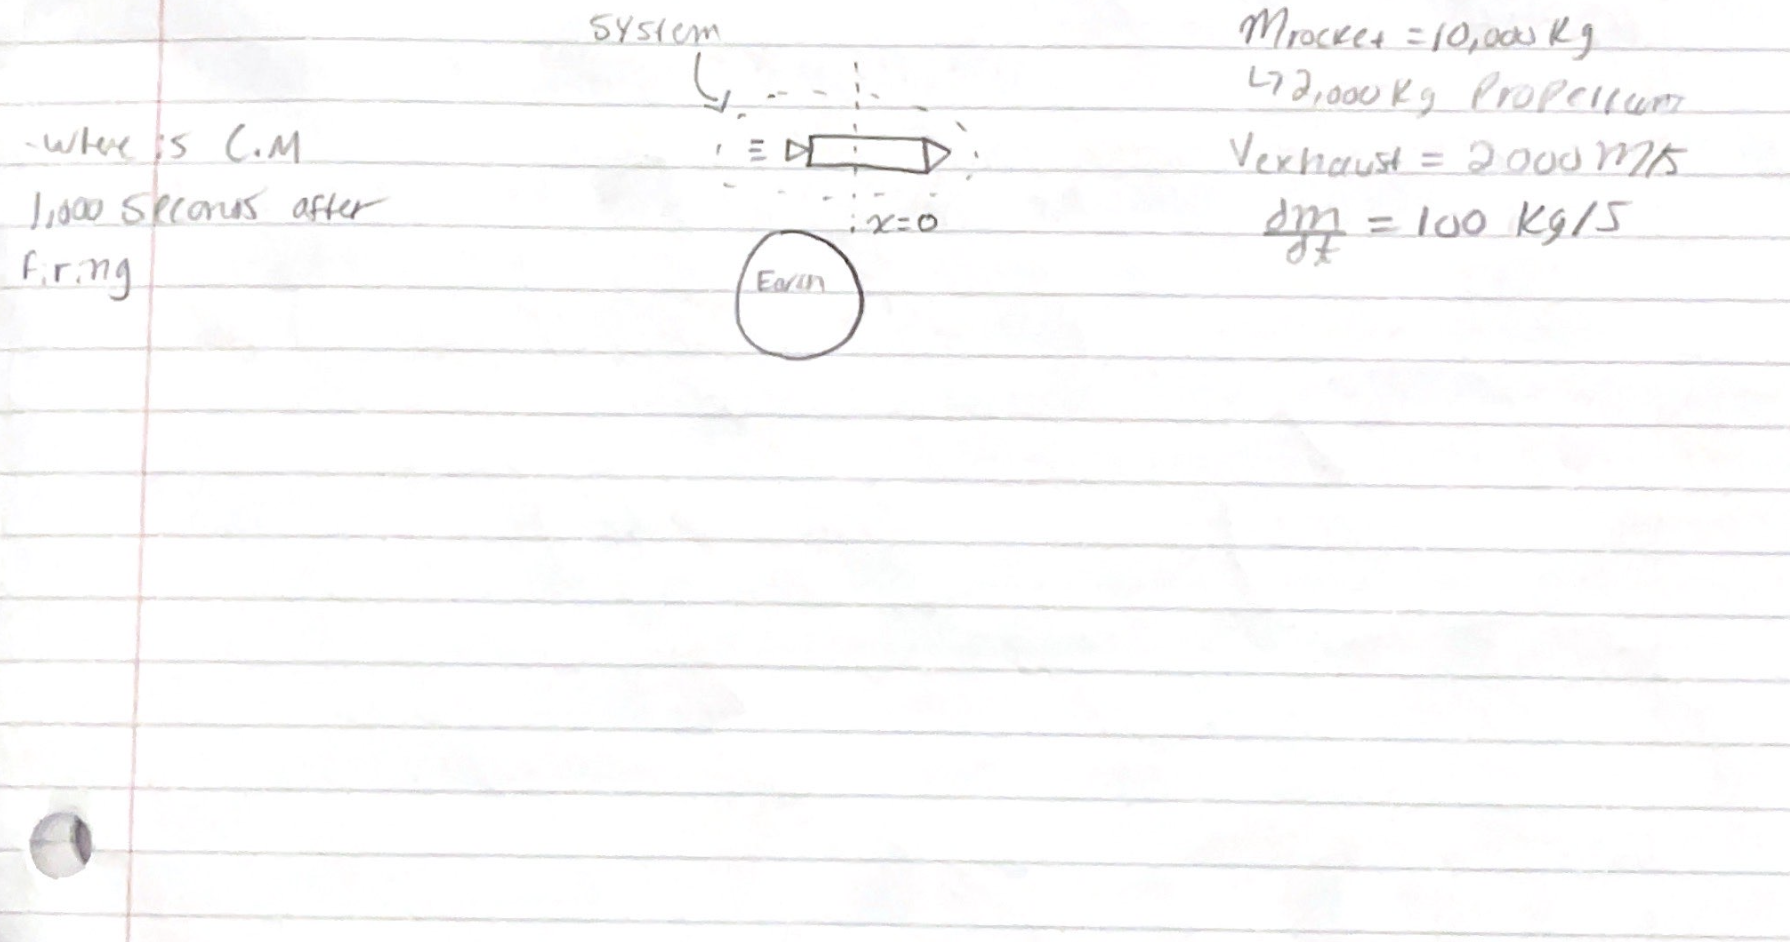 System
Mrocket = 10,000 Kg
↳ 2,000 Kg Propellant
- Where is C.M
Vexhaust = 2000 m/s
1,000 Seconds after
x=0
dm/dt = 100 Kg/s
firing
Earth